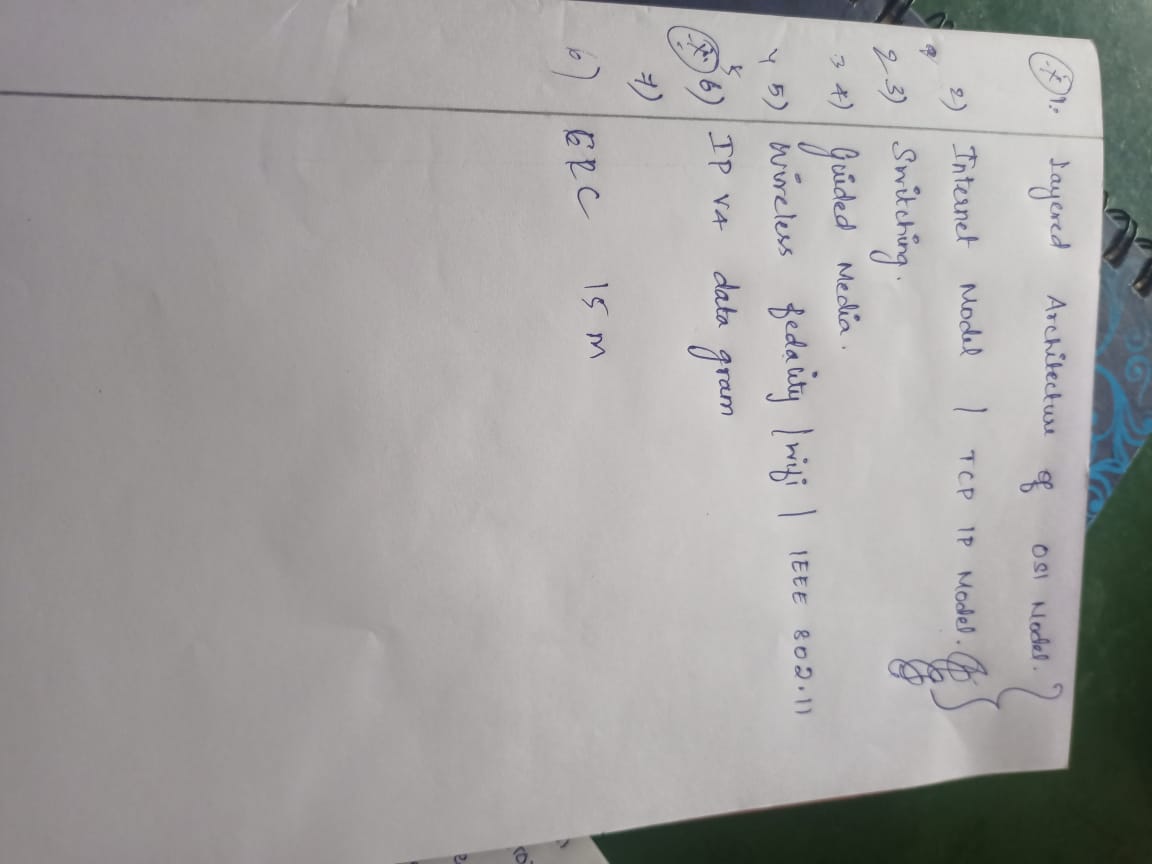 1. Layered Architecture of OSI Model.
2) Internet Model | TCP IP Model.
2 3) Switching.
3 4) Guided Media.
4 5) Wireless fedality | wifi | IEEE 802.11
5
6) IP V4 data gram
7)
6) CRC 15 M